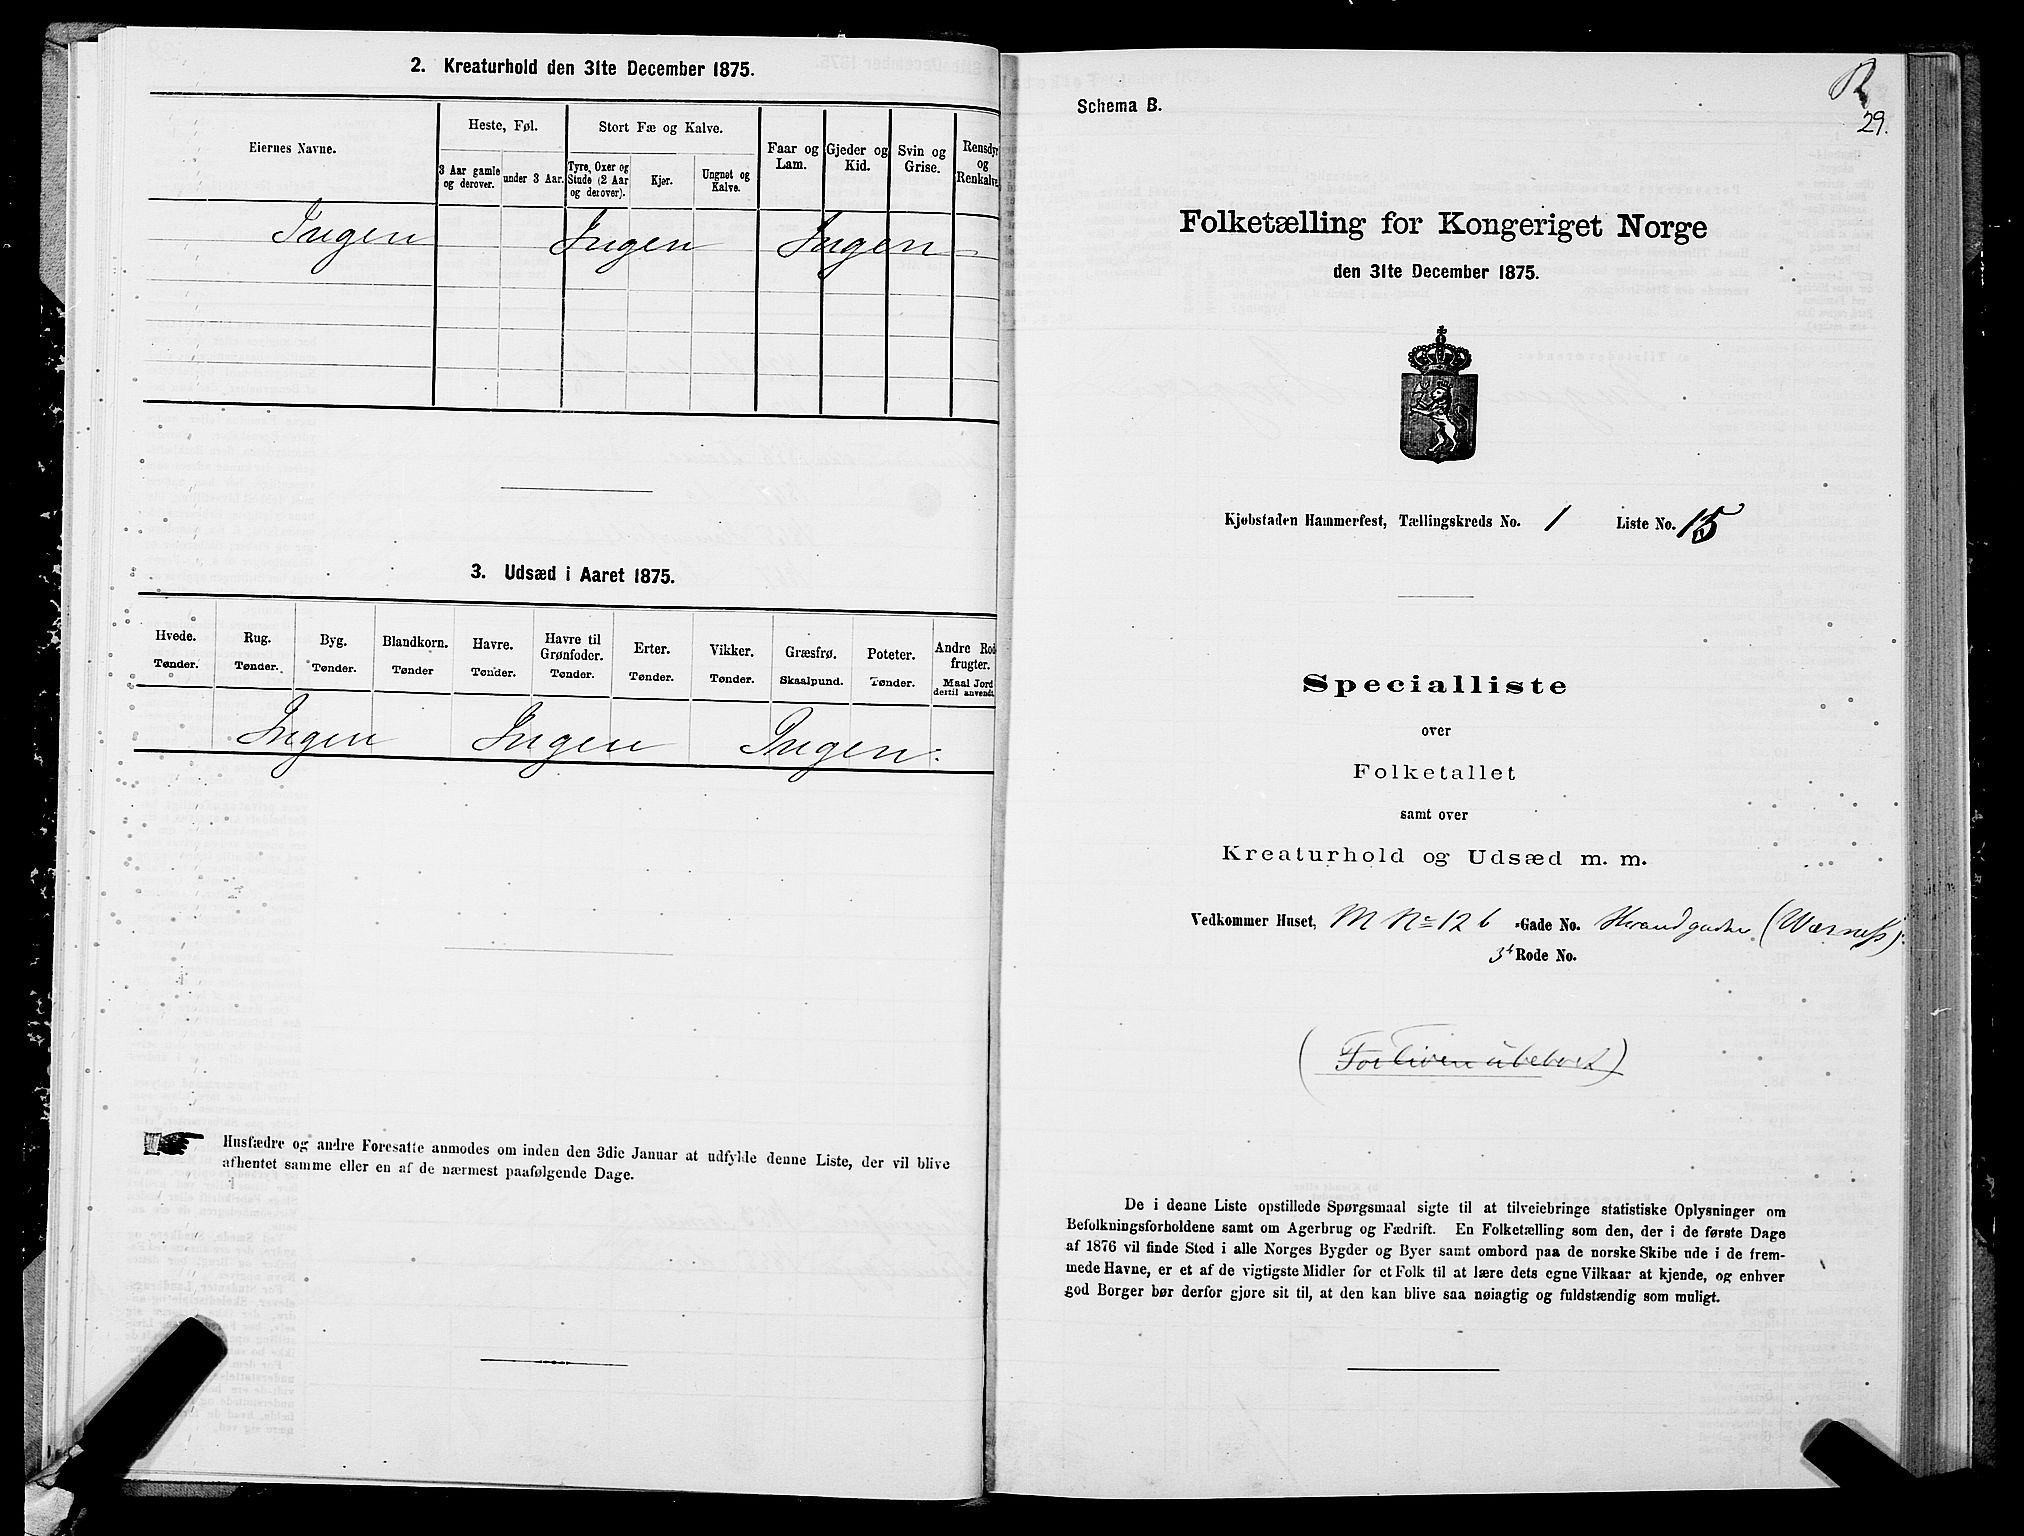 2. Kreaturhold den 31te December 1875.
Eiernes Navne.
Heste, Føl.
Stort Fæ og Kalve.
Faar og Lam.
Gjeder og Kid.
Svin og Grise.
Rensdyr og Renkalve.
3 Aar gamle og derover.
under 3 Aar.
Tyre, Oxer og Stude (2 Aar og derover).
Kjør.
Ungnøt og Kalve.
Ingen Ingen Ingen
3. Udsæd i Aaret 1875.
Hvede. Rug. Byg. Blandkorn. Havre. Havre til Grønfoder. Erter. Vikker. Græsfrø. Poteter. Andre Rodfrugter.
Tønder. Tønder. Tønder. Tønder Tønder. Tønder. Tønder. Tønder. Skaalpund. Tønder. Maal Jord dertil anvendt.
Ingen Ingen Ingen.
Husfædre og andre Foresatte anmodes om inden den 3die Januar at udfylde denne Liste, der vil blive
afhentet samme eller en af de nærmest paafølgende Dage.
29.
Schema B.
Folketælling for Kongeriget Norge
den 31te December 1875.
Kjøbstaden Hammerfest, Tællingskreds No. 1 Liste No. 15
Specialliste
over
Folketallet
samt over
Kreaturhold og Udsæd m. m.
Vedkommer Huset, M No 12 b -Gade No. Strandgaden (Wærness)
3t Rode No.
(For Tiden ubeboet)
De i denne Liste opstillede Spørgsmaal sigte til at tilveiebringe statistiske Oplysninger om
Befolkningsforholdene samt om Agerbrug og Fædrift. En Folketælling som den, der i de første Dage
af 1876 vil finde Sted i alle Norges Bygder og Byer samt ombord paa de norske Skibe ude i de frem-
mede Havne, er et af de vigtigste Midler for et Folk til at lære dets egne Vilkaar at kjende, og enhver
god Borger bør derfor gjøre sit til, at den kan blive saa nøiagtig og fuldstændig som muligt.